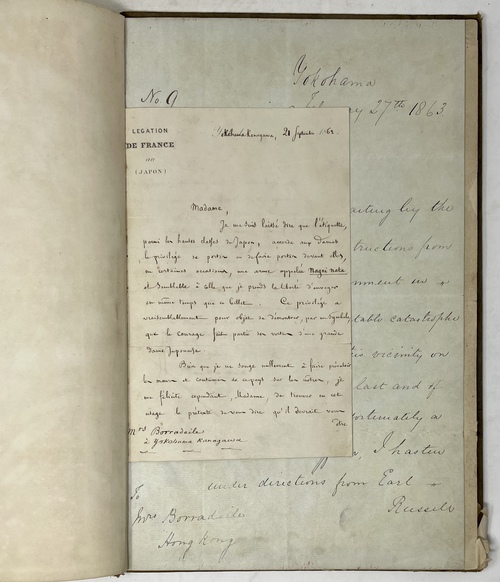 Yokohama
No. 9
February 27th 1863
LEGATION
DE FRANCE
au
(JAPON)
Yokohama Kanagawa, 21 Septembre 1862
Madame,
Je me suis laissé dire que l'étiquette,
parmi les hautes classes du Japon, accorde aux Dames
le privilège de porter ou de faire porter devant elles,
en certaines occasions, une arme appelée Nagui nata
et semblable à celle que je prends la liberté d'envoyer
en même temps que ce billet. Ce privilège a
vraisemblablement pour objet de démontrer, par un symbole
que le courage fait partie des vertus d'une grande
Dame Japonaise.
Bien que je ne songe nullement à faire prévaloir
les mœurs et coutumes de ce pays sur les nôtres, je
me félicite cependant, Madame, de trouver en cet
usage le prétexte de vous dire qu'il devrait vous
être
Mrs Borradaile
à Yokohama Kanagawa
aiting by the
tructions from
nment in
table catastrophe
is vicinity on
last and of
fortunately a
, I hasten
under directions from Earl
Russell
To
Mrs Borradaile
Hong Kong